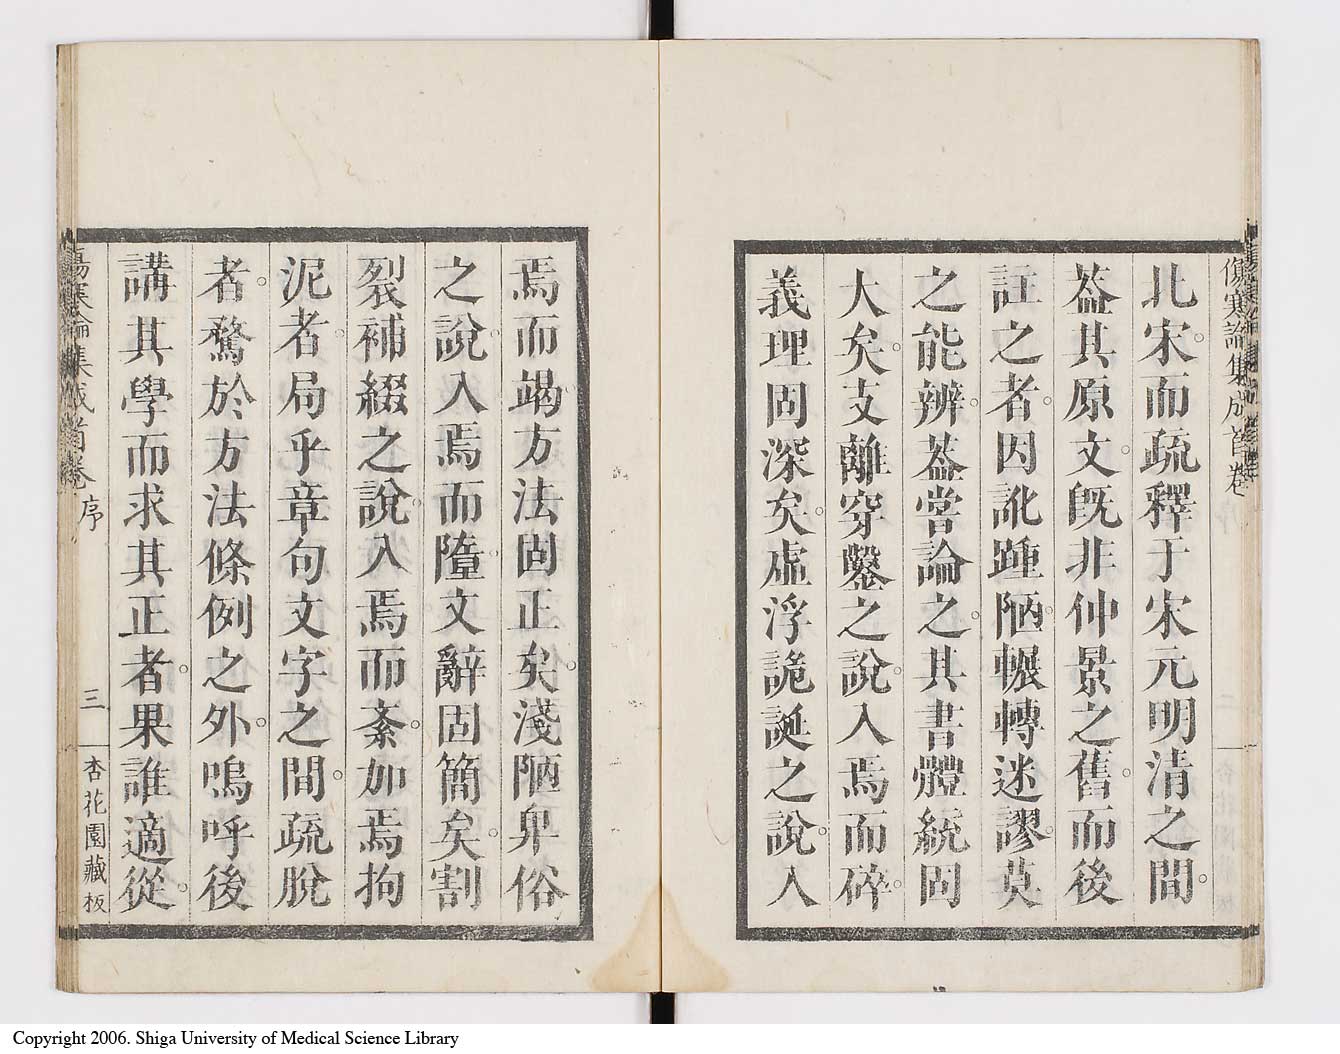 傷寒論集成首卷
北宋而疏釋于宋元明清之間。
葢其原文。既非仲景之舊。而後
註之者。因訛踵陋。輾轉迷謬。莫
之能辨。葢嘗論之。其書體統固
大矣。支離穿鑿之說。入焉而碎。
義理固深矣。虛浮詭誕之說。入
焉而竭。方法固正矣。淺陋卑俗
之說。入焉而隳。文辭固簡矣。割
裂補綴之說。入焉而紊。加焉拘
泥者。局乎章句文字之間。疏脫
者。騖於方法條例之外。嗚呼後
講其學而求其正者。果誰適從。
傷寒論集成首卷 序 三 杏花園藏板
Copyright 2006. Shiga University of Medical Science Library